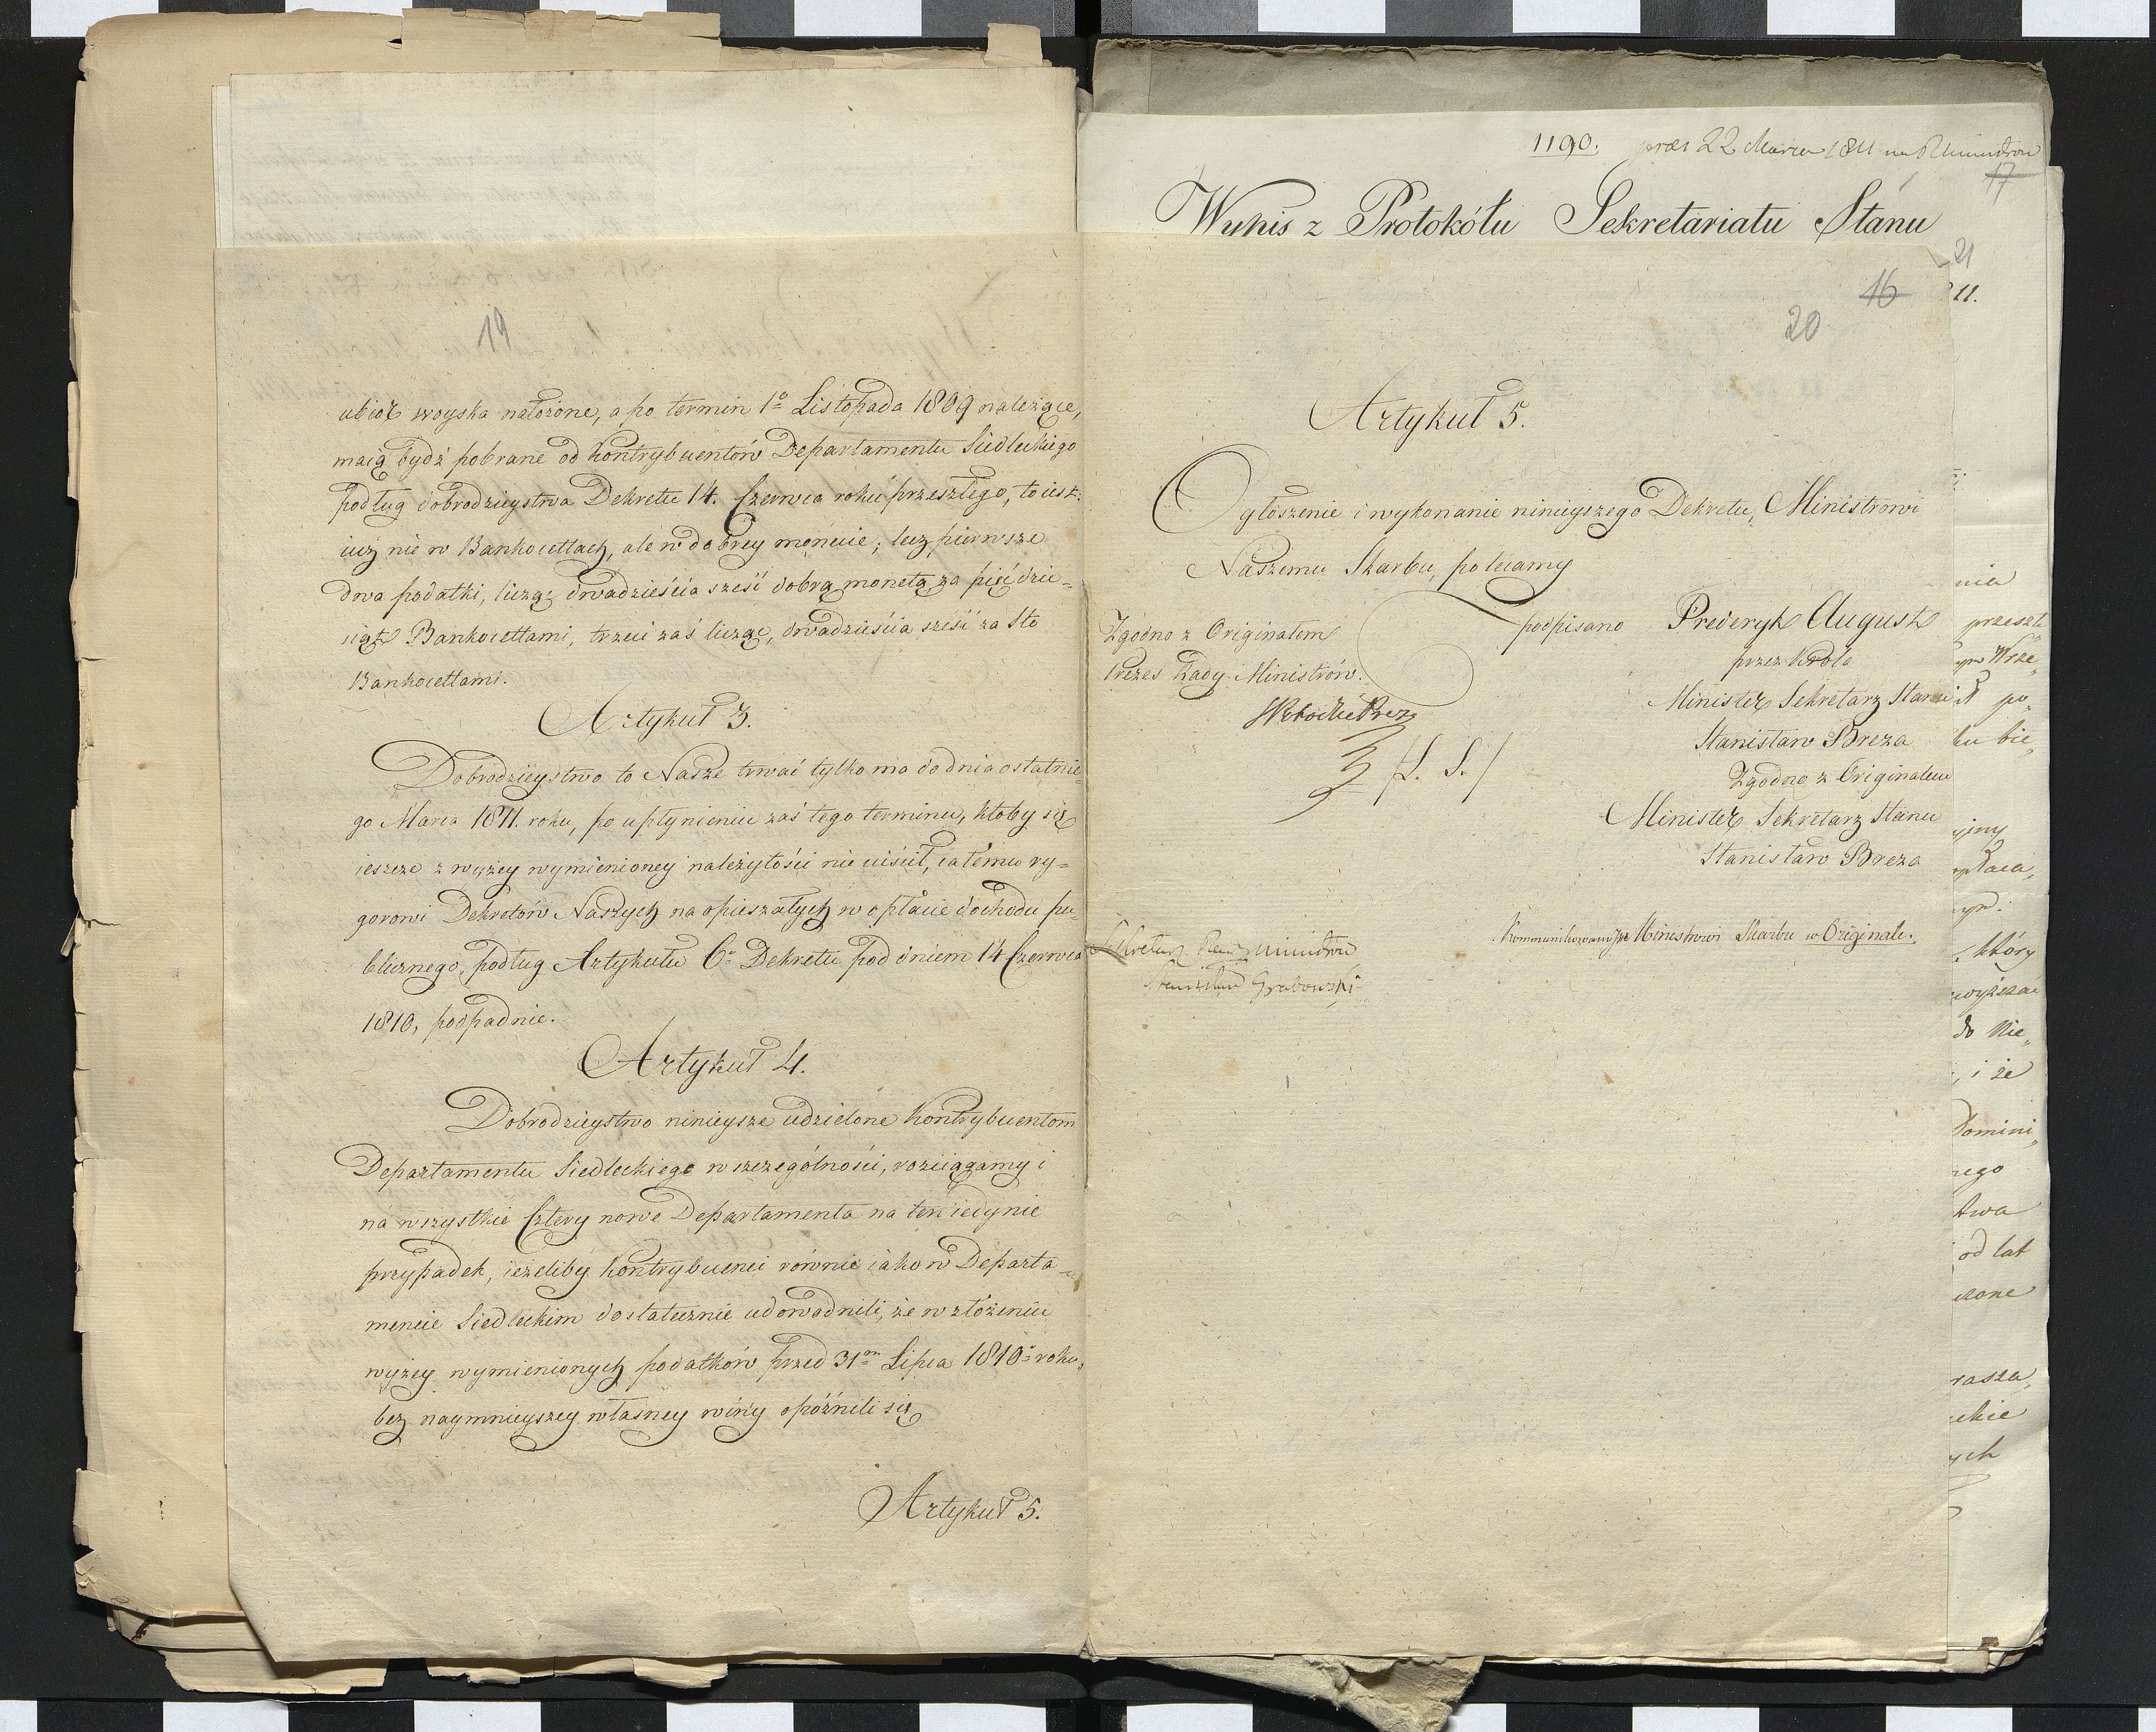 19
ubiór woyska nałożone, a po termin 1º Listopada 1809 należące,
maią bydź pobrane od Kontrybuentów Departamentu Siedleckiego
podług dobrodzieystwa Dekretu 14. Czerwca roku przeszłego, to iest:
iuż nie w Bankocetlach, ale w dobrey monecie; lecz pierwsze
dwa podatki, licząc dwadzieścia sześć dobrą monetą za pięćdzie=
siąt Bankocetlami, trzeci zaś licząc, dwadzieścia sześć za sto
Bankocetlami.
Artykuł 3.
Dobrodzieystwo to Nasze trwać tylko ma do dnia ostatnie=
go Marca 1811. roku, po upłynieniu zaś tego terminu, ktoby się
ieszcze z wyżey wymienioney należytości nie uiścił, całemu ry=
gorowi Dekretów Naszych na opieszałych w opłacie dochodu pu
blicznego, podług Artykułu 6º Dekretu pod dniem 14 Czerwca
1810, podpadnie.
Artykuł 4.
Dobrodzieystwo ninieysze udzielone Kontrybuentom
Departamentu Siedleckiego w szczególności, rozciągamy i
na wszystkie cztery nowe Departamenta na ten iedynie
przypadek, ieżeliby Kontrybuenci równie iako w Departa=
mencie Siedleckim dostatecznie udowodnili, że w złożeniu
wyżey wymienionych podatków przed 31m Lipca 1810º roku,
bez naymnieyszey własney winy opóźnili się
Artykuł 5.
1190. præs 22 Marca 1811 na R Ministrów
17
Wypis z Protokółu Sekretariatu Stanu
21
16
11.
20
Artykuł 5.
Ogłoszenie i wykonanie ninieyszego Dekretu, Ministrowi
Naszemu Skarbu, polecamy
podpisano Fryderyk August
przez Króla
Minister Sekretarz Stanu
Stanisław Breza
Zgodno z Originałem
Minister Sekretarz Stanu
Stanisław Breza
Zgodno z Originałem
Prezes Rady Ministrów.
/L. S./
Kommunikowano JW Ministrowi Skarbu w Originale.
Sekretarz Rady Ministrów
Stanisław Grabowski
nia
przeszł
Wrze„
po„
ku bie„
płaca,
, który
do Nie„
, i że
Domini„
nego
twa
od lat
zone
rasza„
ckie
ych